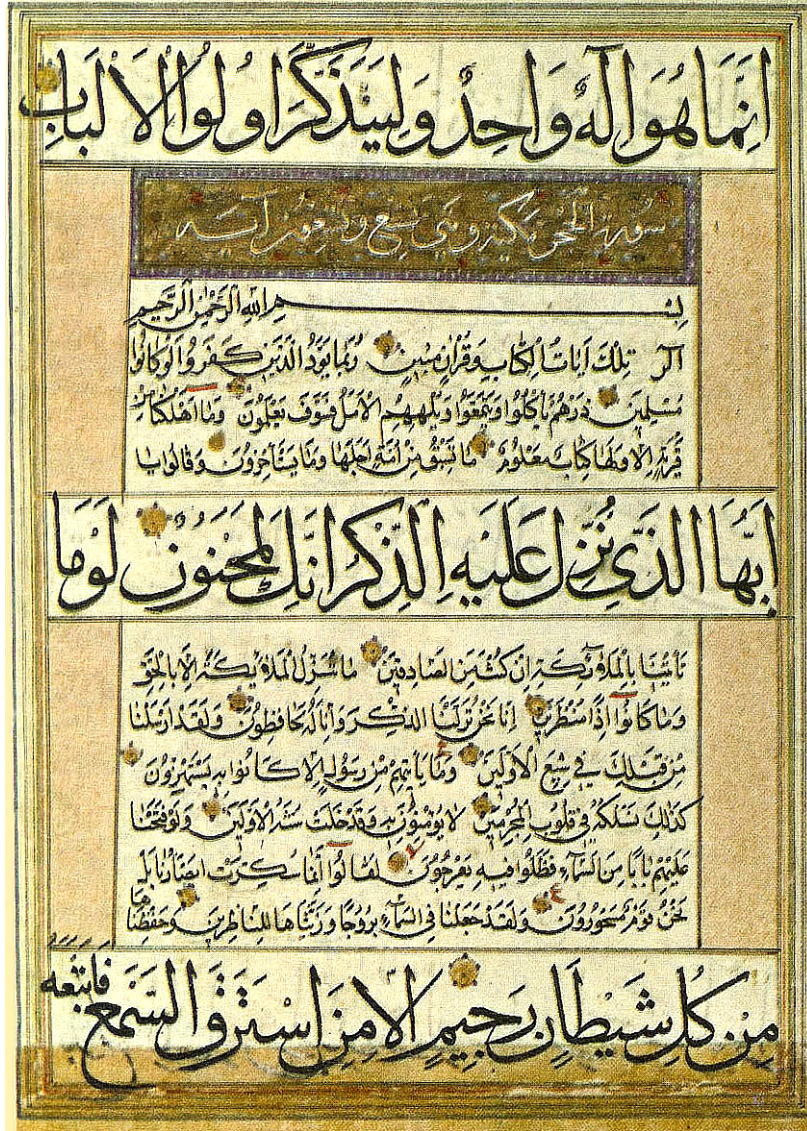 اِنَّمَا هُوَ اِلٰهٌ وَاحِدٌ وَلِيَذَّكَّرَ اُولُوا الْاَلْبَابِ
سورة الحجر مكية وهي تسع وتسعون آية
بِسْمِ اللهِ الرَّحْمٰنِ الرَّحِيمِ
الٓرٰ تِلْكَ اٰيَاتُ الْكِتَابِ وَقُرْاٰنٍ مُبِينٍ رُبَمَا يَوَدُّ الَّذِينَ كَفَرُوا لَوْ كَانُوا
مُسْلِمِينَ ذَرْهُمْ يَأْكُلُوا وَيَتَمَتَّعُوا وَيُلْهِهِمُ الْاَمَلُ فَسَوْفَ يَعْلَمُونَ وَمَا اَهْلَكْنَا مِنْ
قَرْيَةٍ اِلَّا وَلَهَا كِتَابٌ مَعْلُومٌ مَا تَسْبِقُ مِنْ اُمَّةٍ اَجَلَهَا وَمَا يَسْتَأْخِرُونَ وَقَالُوا يَا
اَيُّهَا الَّذِى نُزِّلَ عَلَيْهِ الذِّكْرُ اِنَّكَ لَمَجْنُونٌ لَوْمَا
تَأْتِينَا بِالْمَلٰٓئِكَةِ اِنْ كُنْتَ مِنَ الصَّادِقِينَ مَا نُنَزِّلُ الْمَلٰٓئِكَةَ اِلَّا بِالْحَقِّ
وَمَا كَانُوا اِذًا مُنْظَرِينَ اِنَّا نَحْنُ نَزَّلْنَا الذِّكْرَ وَاِنَّا لَهُ لَحَافِظُونَ وَلَقَدْ اَرْسَلْنَا
مِنْ قَبْلِكَ فِى شِيَعِ الْاَوَّلِينَ وَمَا يَأْتِيهِمْ مِنْ رَسُولٍ اِلَّا كَانُوا بِهِ يَسْتَهْزِؤُنَ
كَذٰلِكَ نَسْلُكُهُ فِى قُلُوبِ الْمُجْرِمِينَ لَا يُؤْمِنُونَ بِهِ وَقَدْ خَلَتْ سُنَّةُ الْاَوَّلِينَ وَلَوْ فَتَحْنَا
عَلَيْهِمْ بَابًا مِنَ السَّمَآءِ فَظَلُّوا فِيهِ يَعْرُجُونَ لَقَالُوا اِنَّمَا سُكِّرَتْ اَبْصَارُنَا بَلْ
نَحْنُ قَوْمٌ مَسْحُورُونَ وَلَقَدْ جَعَلْنَا فِى السَّمَآءِ بُرُوجًا وَزَيَّنَّاهَا لِلنَّاظِرِينَ وَحَفِظْنَاهَا
مِنْ كُلِّ شَيْطَانٍ رَجِيمٍ اِلَّا مَنِ اسْتَرَقَ السَّمْعَ فَاَتْبَعَهُ